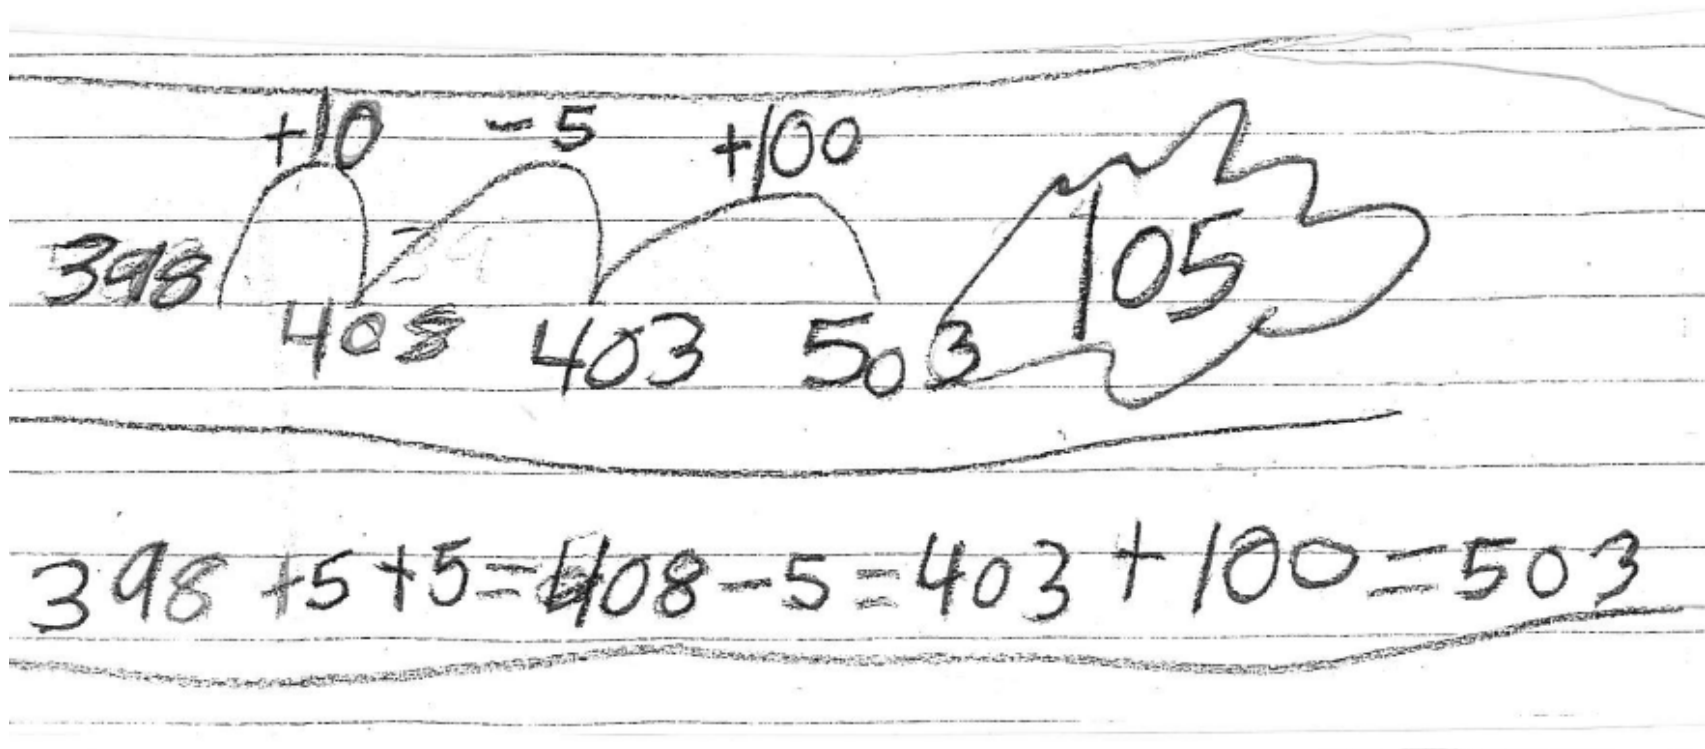 +10 -5 +100
398 105
408 403 503
398 +5+5=408-5=403+100=503